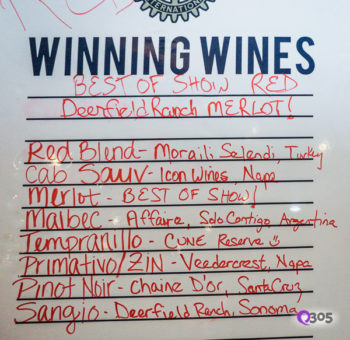 INTERNATIONAL
WINNING WINES
BEST OF SHOW RED
Deerfield Ranch MERLOT!
Red Blend - Morali Selendi, Turkey
Cab Sauv - Icon Wines, Napa
Merlot - BEST OF SHOW!
Malbec - Affaire, Solo Contigo, Argentina
Tempranillo - CUNE Reserve
Primativo/ZIN - Veedercrest, Napa
Pinot Noir - Chaine D'or, Santa Cruz
Sangio - Deerfield Ranch, Sonoma
Q305